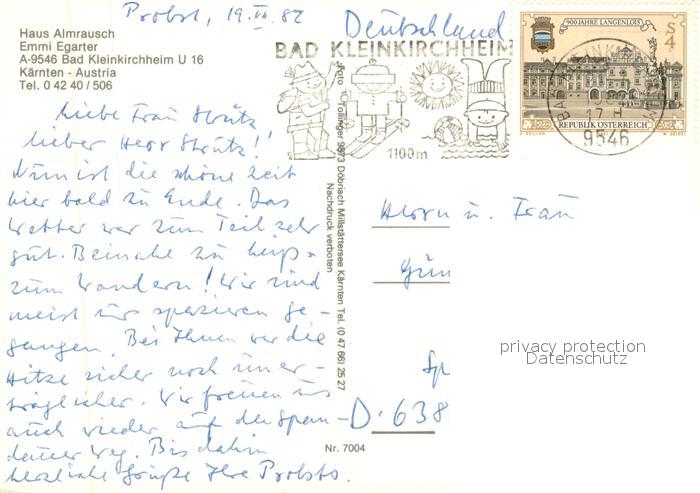 Probst, 19. VII. 82
Deutschland
Haus Almrausch
Emmi Egarter
A-9546 Bad Kleinkirchheim U 16
Kärnten - Austria
Tel. 0 42 40 / 506
BAD KLEINKIRCHHEIM
1100m
900 JAHRE LANGENLOIS
S 4
REPUBLIK ÖSTERREICH
17-
9546
Liebe Frau
lieber Herr
Nun ist die schöne Zeit
hier bald zu Ende. Das
Wetter war zum Teil sehr
gut. Beinahe zu heiß
zum Wandern! Wir sind
meist nur spazieren ge-
gangen. Bei Ihnen war die
Hitze sicher noch uner-
träglicher. Wir freuen uns
auch wieder auf den Span-
dauer Weg. Bis dahin
herzliche Grüße Ihre Probsts.
Foto Tollinger 9873 Döbriach Millstättersee Kärnten Tel. (0 47 66) 25 27
Nachdruck verboten
Herrn u. Frau
Gün
Sp
D. 638
Nr. 7004
privacy protection
Datenschutz